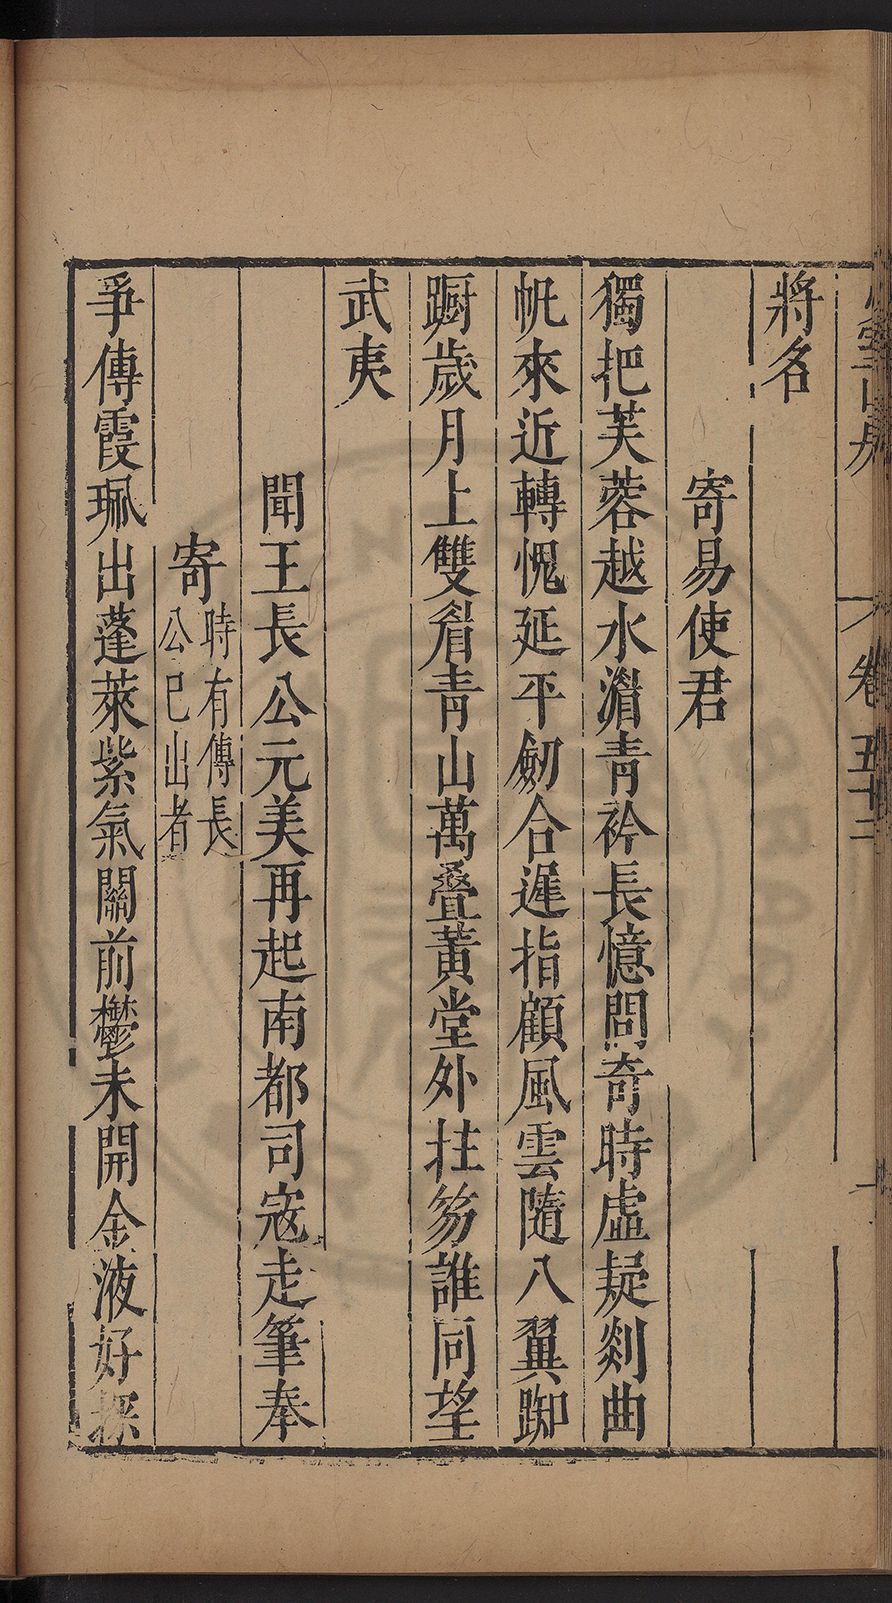 卷五十二
將名
寄易使君
獨把芙蓉越水湄青衿長憶問奇時虛疑剡曲
帆來近轉愧延平劒合遲指顧風雲隨八翼踟
蹰歲月上雙眉青山萬疊黃堂外拄笏誰同望
武夷
聞王長公元美再起南都司寇走筆奉
寄時有傳長公已出者
爭傳霞珮出蓬萊紫氣關前鬱未開金液好探